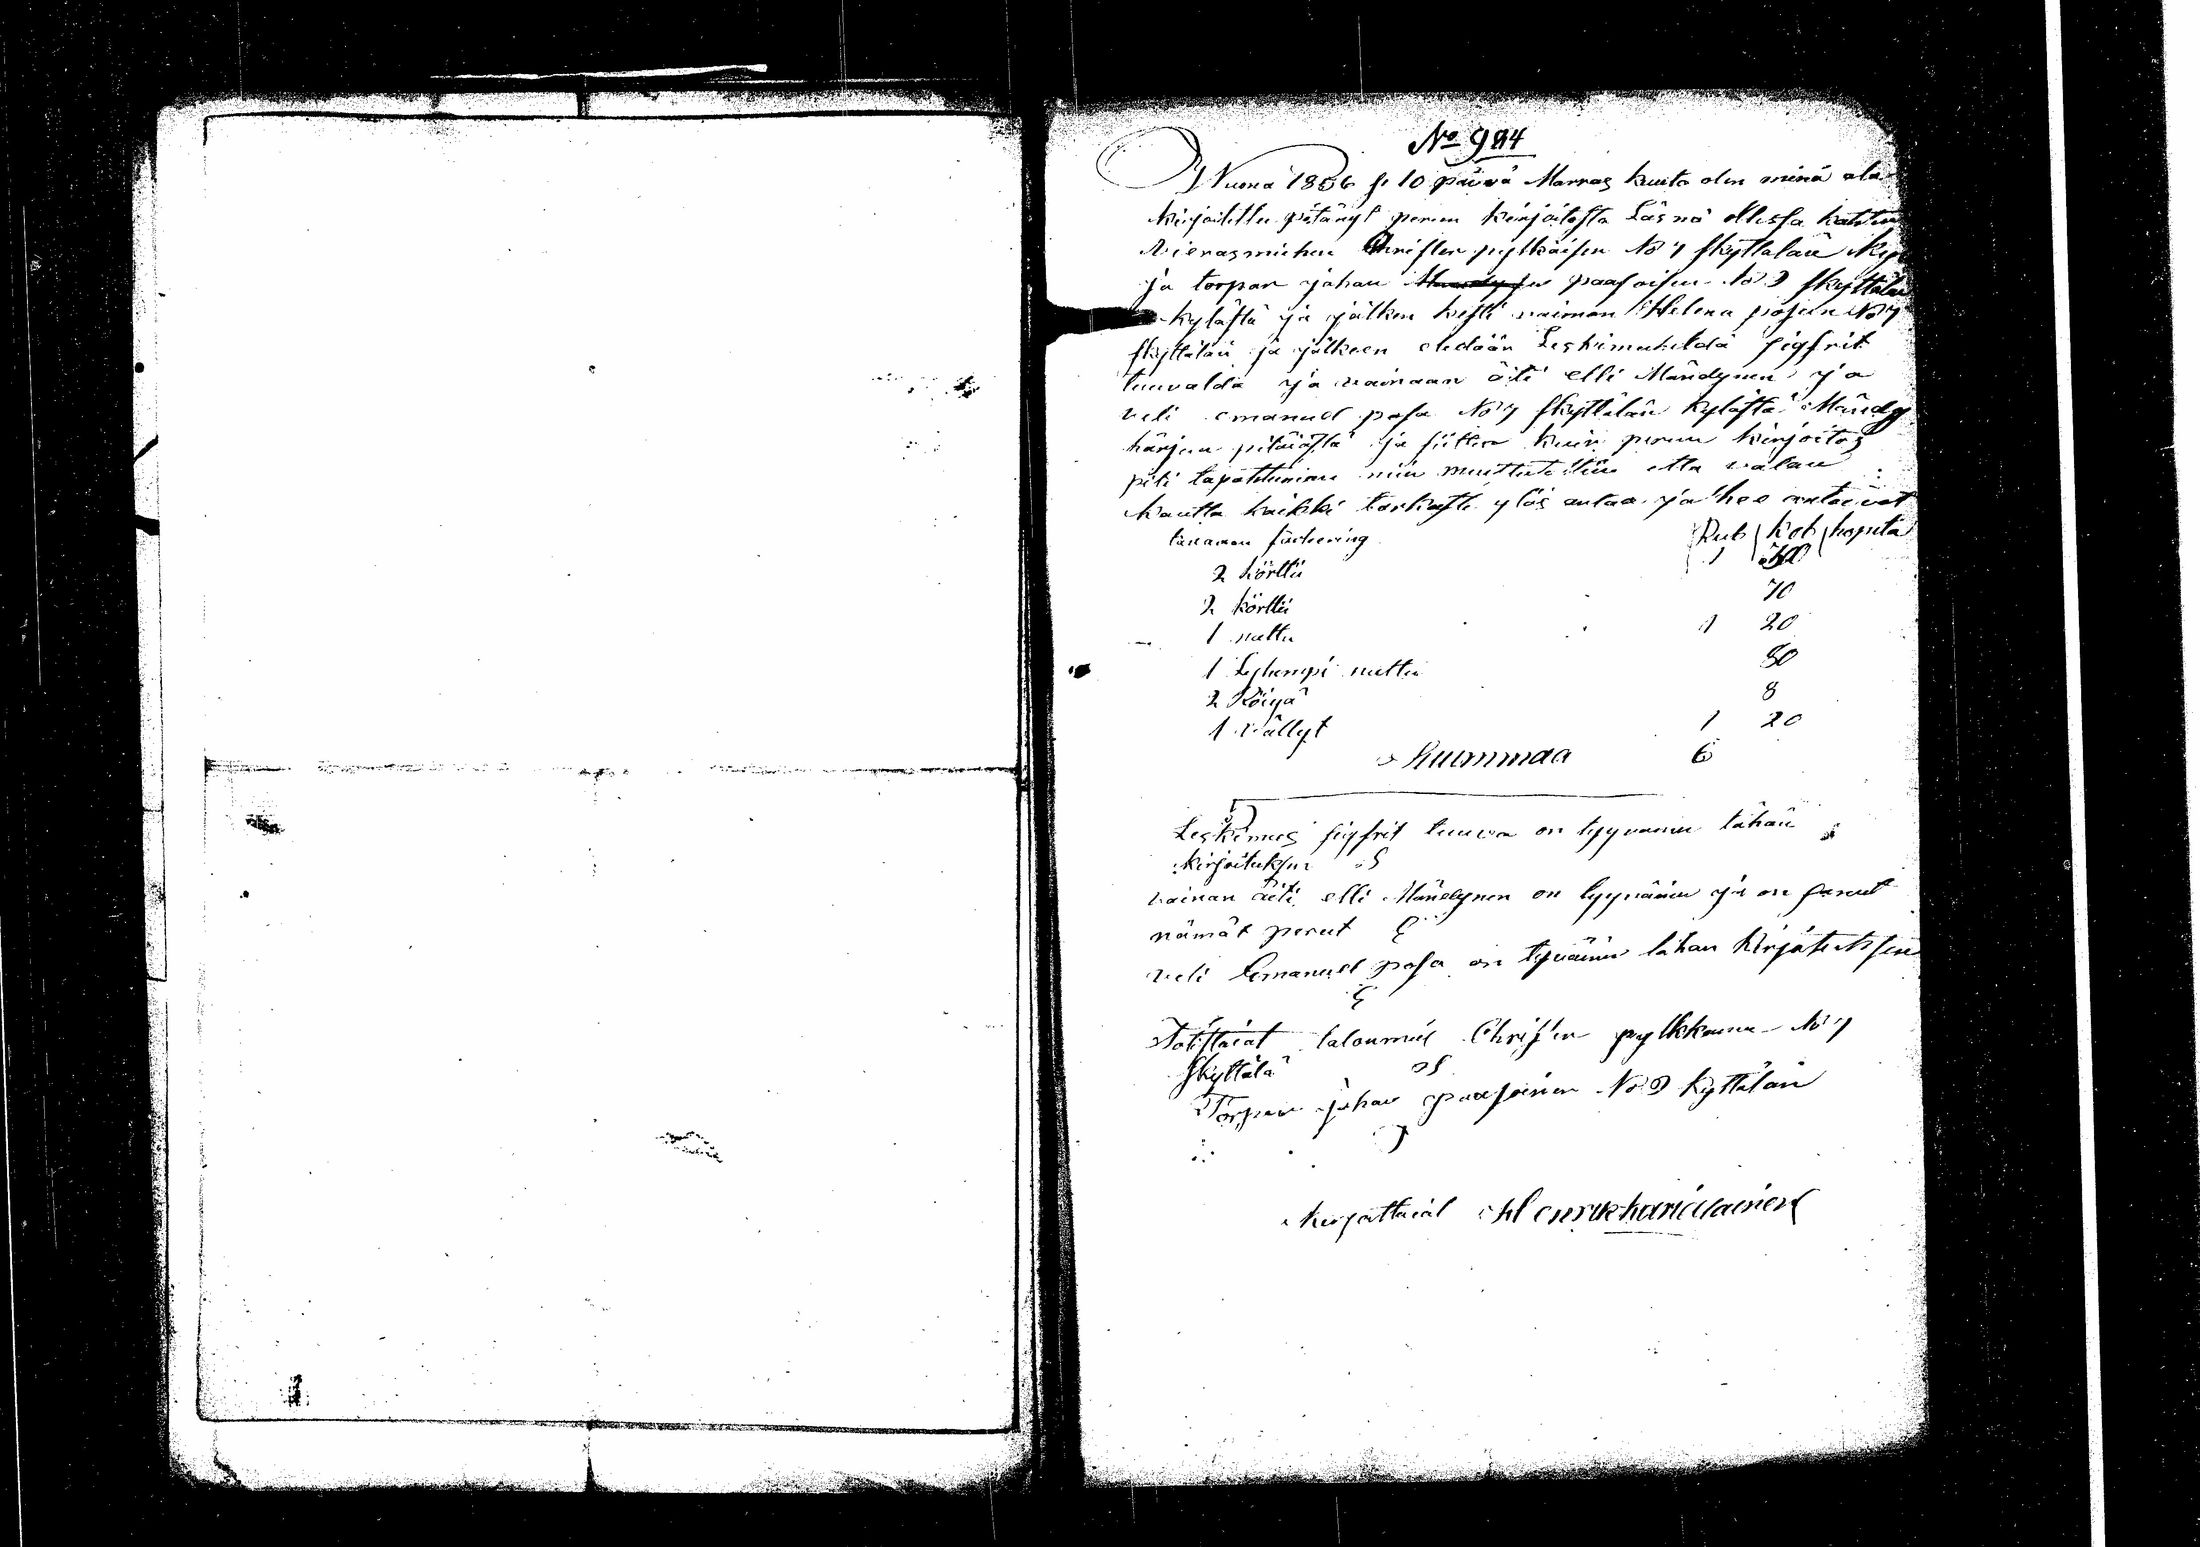 No 984
Wuona 1856 s. 10 päivä Marras kuuta olin minä ala
kirjoitettu pitänyt perun kirjoitosta Läsnä ollessa kahten
Vierasmiehen Christer pylkäisen No 7 skyttälän
ja torpar johan paasoisen No 9 skyttälän
kylästä ja jälken kesti vaimon Helena posun No 7
skyttälän ja jälkeen ehdään Leskimieheldä sigfrit
tuuvalda ja vainaan äiti elli Mändynen ja
veli emanuel posa No 7 skyttälän kylästä Mändy
härjun pitäiästä ja sitten kuin perun kirjoitos
piti tapahtuman niin muistutettiin etta valan
kautta kaikki tarkasti ylös antaa ja hee antoivat
Rub kob hopita
2 körttii 1
2 körttii 70
1 nuttu 1 20
1 Lyhempi nuttu 80
2 Röiyä 8
1 vällyt 1 20
Summaa 6
Leskimies sigfrit tuuva on tyyvainen tähän
kirjoituksen
vainan äiti elli Mändynen on tyyväinen ja on sanut
nämät perut
veli Emanuel posa on tyväinen tähan kirjotuksen
Totistaiat talonmies Chris'er pylkkanen No 7
skyttälä
Torpar johan paasoinen No 9 kyttälän
kirjottaiat Henrik hanälainen